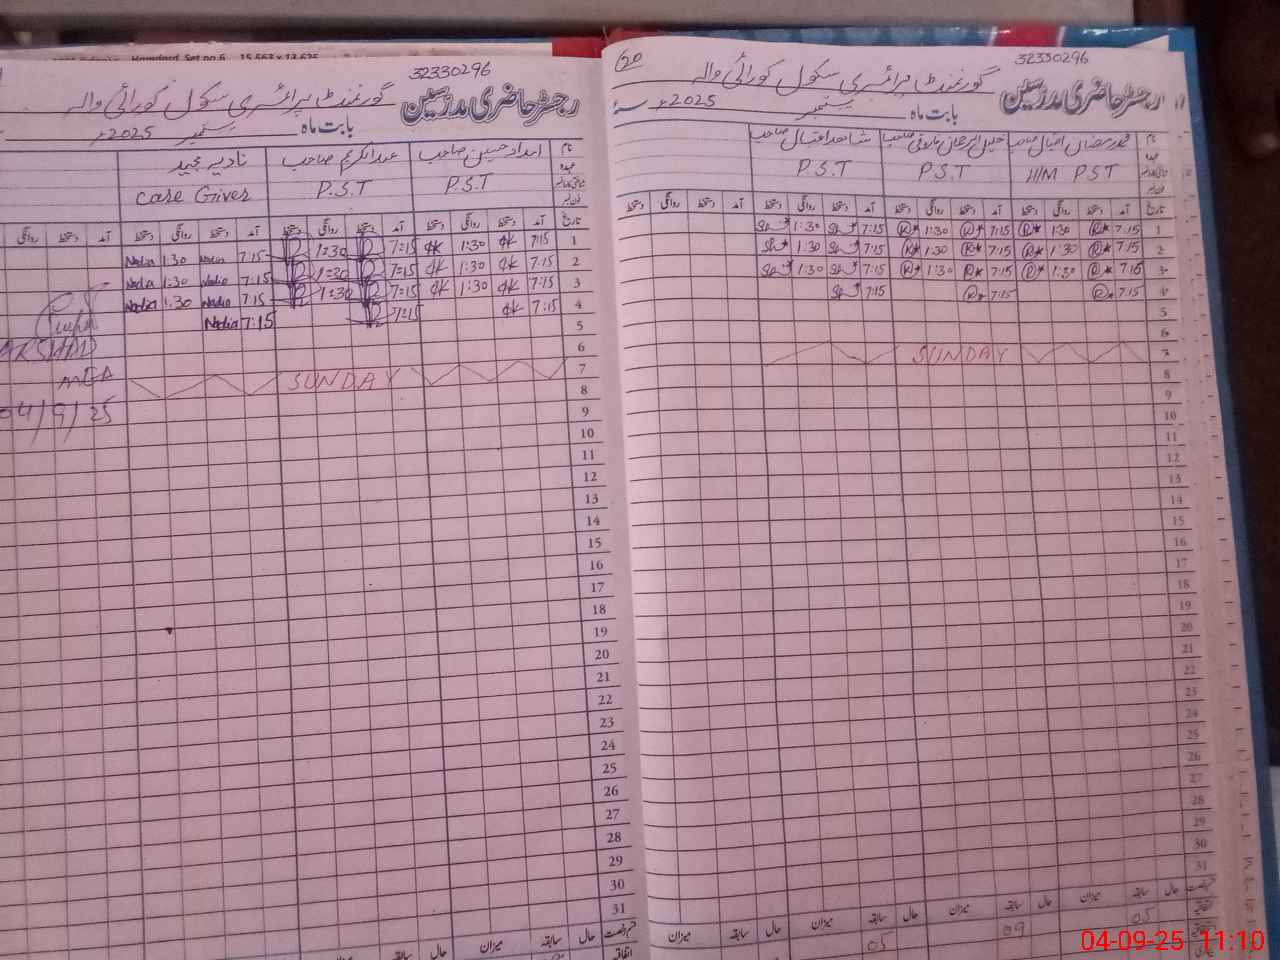 32330296
گورنمنٹ پرائمری سکول کورائی والہ
رجسٹر حاضری مدرسین
بابت ماہ ستمبر 2025ء
نام
امداد حسین صاحب
عبدالکریم صاحب
نادیہ مجید
عہدہ
P.S.T
P.S.T
Care Giver
تاریخ آمد دستخط روانگی دستخط آمد دستخط روانگی دستخط آمد دستخط روانگی دستخط آمد دستخط روانگی
1 7:15 1:30 7:15 1:30 7:15 Nadia 1:30 Nadia
2 7:15 1:30 7:15 1:30 7:15 Nadia 1:30 Nadia
3 7:15 1:30 7:15 1:30 7:15 Nadia 1:30 Nadia
4 7:15 7:15 7:15 Nadia
5
6
7 SUNDAY
8
9
10
11
12
13
14
15
16
17
18
19
20
21
22
23
24
25
26
27
28
29
30
31
ARSHAD
MEA
04/9/25
حال سابقہ میزان حال سابقہ میزان حال
60
32330296
گورنمنٹ پرائمری سکول کورائی والہ
رجسٹر حاضری مدرسین
بابت ماہ ستمبر 2025ء سنہ
نام
محمد رمضان اقبال صاحب
شاہد اقبال صاحب
عہدہ
H/M P.S.T
P.S.T
P.S.T
تاریخ آمد دستخط روانگی دستخط آمد دستخط روانگی دستخط آمد دستخط روانگی دستخط آمد دستخط روانگی دستخط
1 7:15 1:30 7:15 1:30 7:15 1:30
2 7:15 1:30 7:15 1:30 7:15 1:30
3 7:15 1:30 7:15 1:30 7:15 1:30
4 7:15 7:15 7:15
5
6
7 SUNDAY
8
9
10
11
12
13
14
15
16
17
18
19
20
21
22
23
24
25
26
27
28
29
30
31
حال سابقہ میزان حال سابقہ میزان حال سابقہ میزان حال سابقہ میزان
05 09 05
04-09-25 11:10